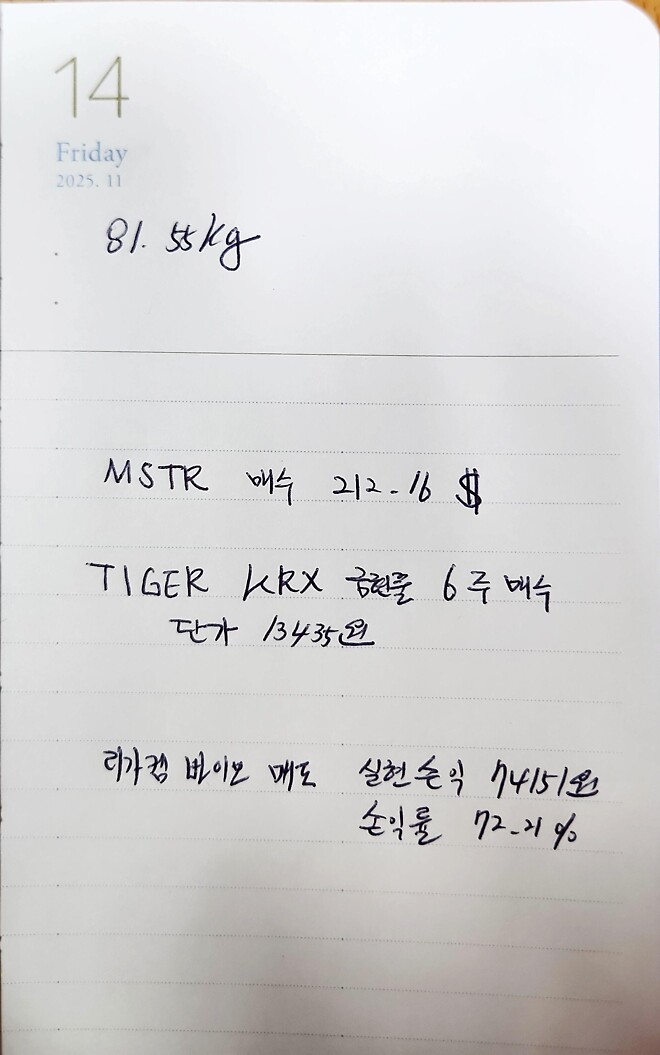 14
Friday
2025. 11
81. 55kg
MSTR 매수 212-16 $
TIGER KRX 금현물 6주 매수
단가 13435원
리가켐 바이오 매도 실현손익 74151원
손익률 72-21%